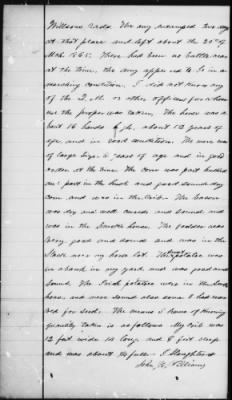 Williams rads. The army encamped two days
at that place and left about the 20th of
Mch 1865. There had been no battle near
at the time, the army appeared to be in a
marching condition. I did not know any
of the Q.M. or other officers for whose
use the property was taken. The horse was a
bout 16 hands high about 12 years of
age and in good condition. The mare was
of large size 6 years of age and in good
order at the time. The corn was part husked
and part in the husk and good sound dry
corn and was in the crib. The bacon
was dry and well cured and sound and
was in the smoke house. The fodder was
very good and sound and was in the
Stack near my horse lot. The potatoes was
in a bank in my yard and was good and
sound. The Irish potatoes were in the
house and were sound also some I had saved
for seed. The means I have of knowing
quantity taken is as follows. My crib was
12 feet wide 14 long and 8 feet deep
and was about full. I slaughtered
John R. Williams